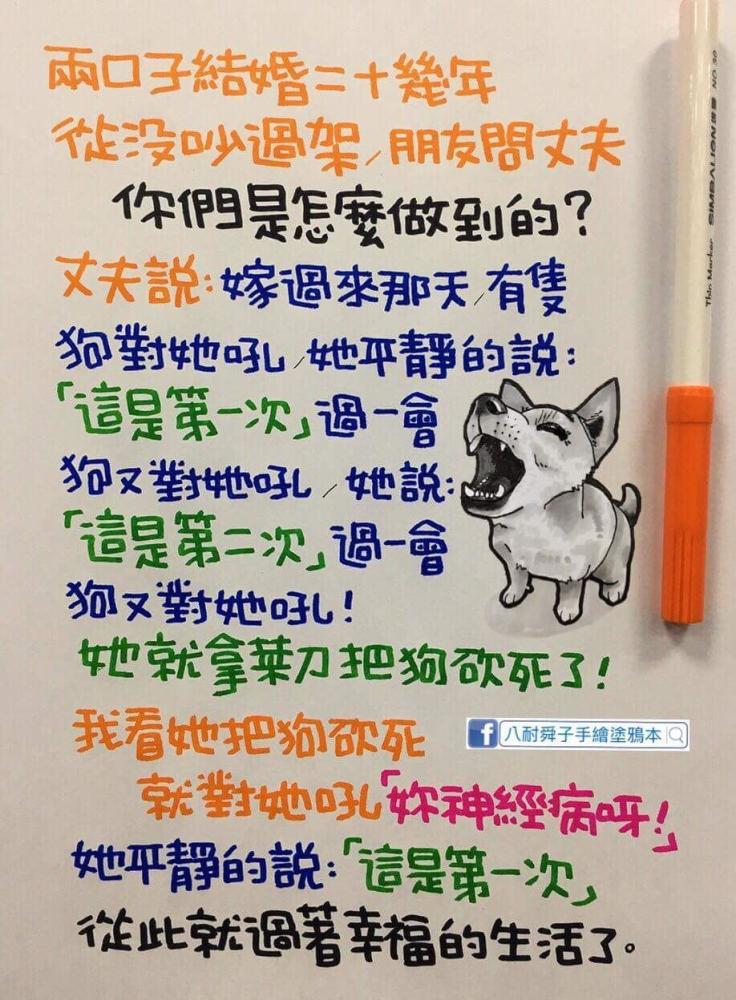 兩口子結婚二十幾年
從沒吵過架/朋友問丈夫
你們是怎麼做到的?
丈夫說:嫁過來那天/有隻
狗對她吼/她平靜的說:
「這是第一次」過一會
狗又對她吼/她說:
「這是第二次」過一會
狗又對她吼!
她就拿菜刀把狗砍死了!
我看她把狗砍死
就對她吼「妳神經病呀!」
她平靜的說:「這是第一次」
從此就過著幸福的生活了。
f 八耐舜子手繪塗鴉本
Thin Marker SIMBALION NO. 30